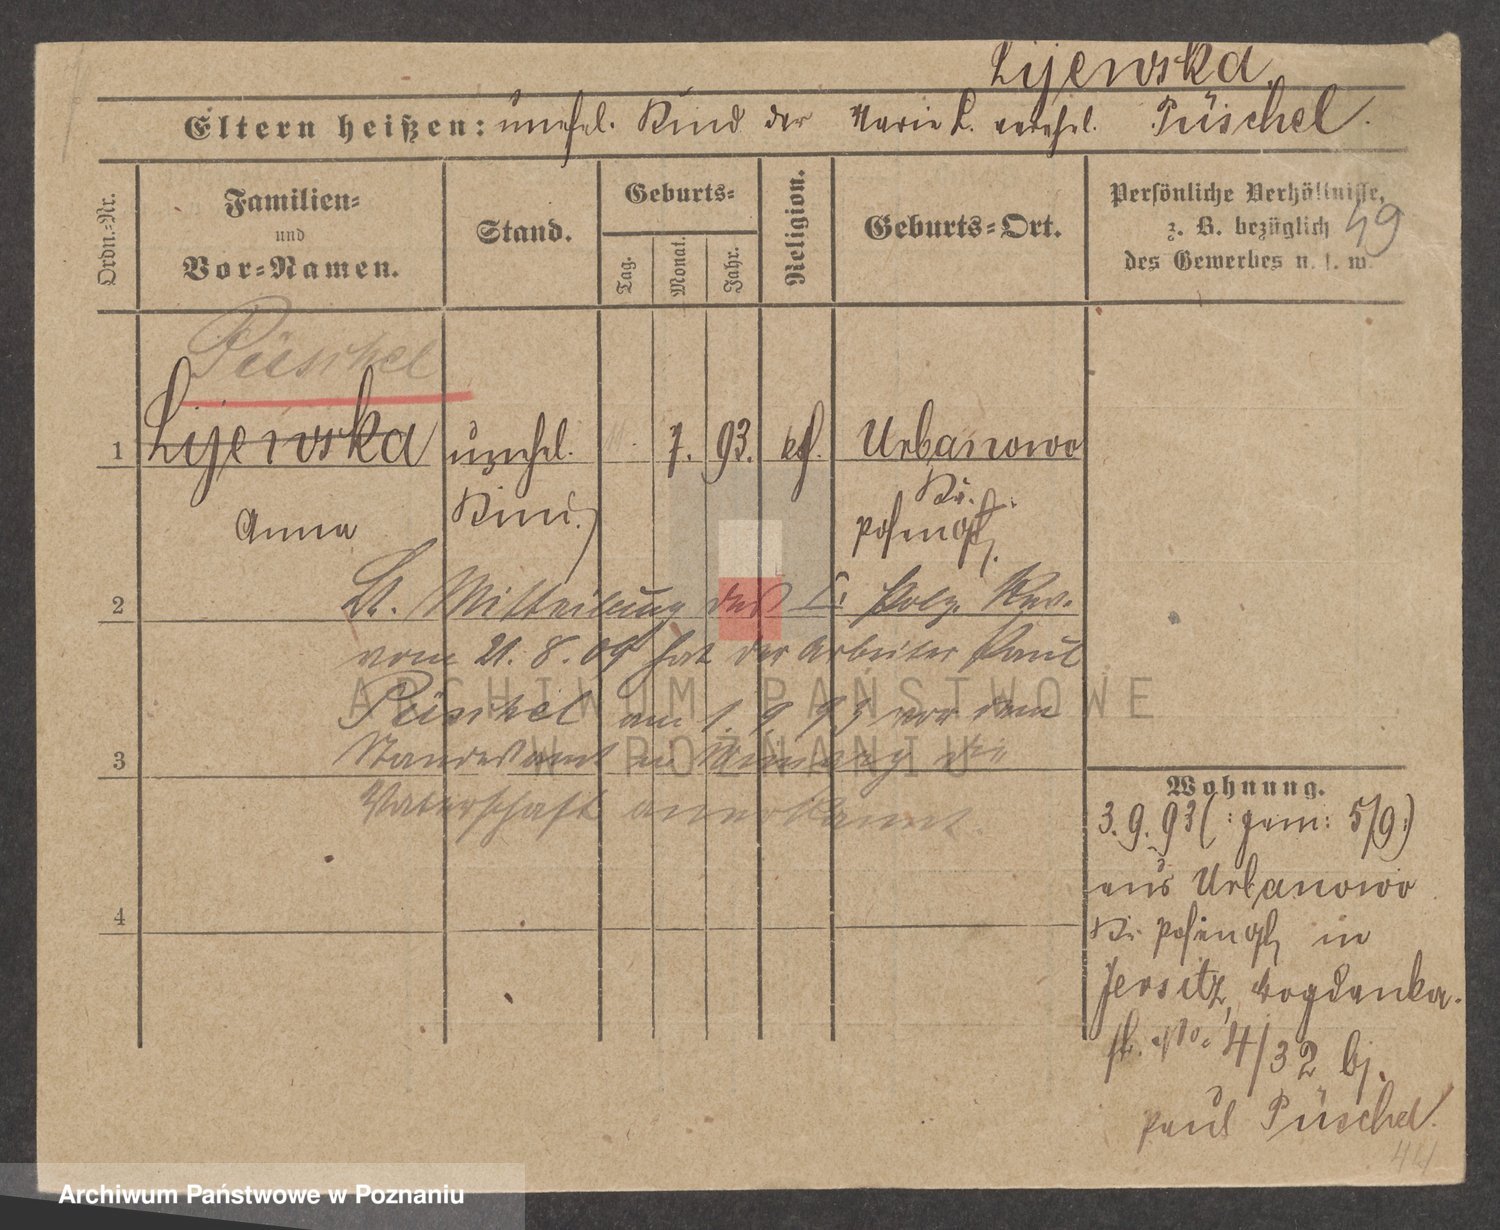 Lijewska
Eltern heißen: unehel. Kind der Marie L. verehel. Püschel.
Ordn.=Nr.
Familien=
und
Vor=Namen.
Stand.
Geburts=
Tag.
Monat.
Jahr.
Religion.
Geburts=Ort.
Persönliche Verhältnisse,
z. B. bezüglich
des Gewerbes u. s. w.
49
Püschel
1 Lijewska unehel. 7. 93. kh. Urbanowo
Anna Kind. Kr.
Posen
2 Lt. Mitteilung des Polz. Rev.
vom 21. 8. 09 hat der Arbeiter Paul
Püschel am 1. 9 93 vor dem
3 Standesamt in die
Vaterschaft anerkannt.
4
Wohnung.
3. 9. 93 (: gem: 5/9:)
aus Urbanowo
Kr. Posen in
Jersitz, Bogdanka-
str. No. 4/32 bj.
Paul Püschel.
44
ARCHIWUM PAŃSTWOWE
W POZNANIU
Archiwum Państwowe w Poznaniu